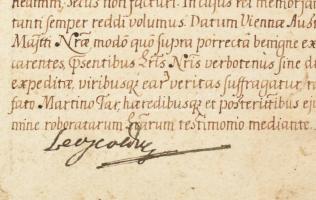 redimm, secus non facturi. In cujus rei memoriam
tanti semper reddi volumus. Datum Viennæ Aust
Majtti Nræ modô quô supra porrectâ benigne ex
carentes, pñsentibus Lris Nris verbotenus sine d
expeditæ, viribusq́; ear̃ veritas suffragatur, r
fato Martino Jar, hæredibusq́; et posteritibus ej
mine roboratarum Lrarum testimonio mediante.
Leopoldus